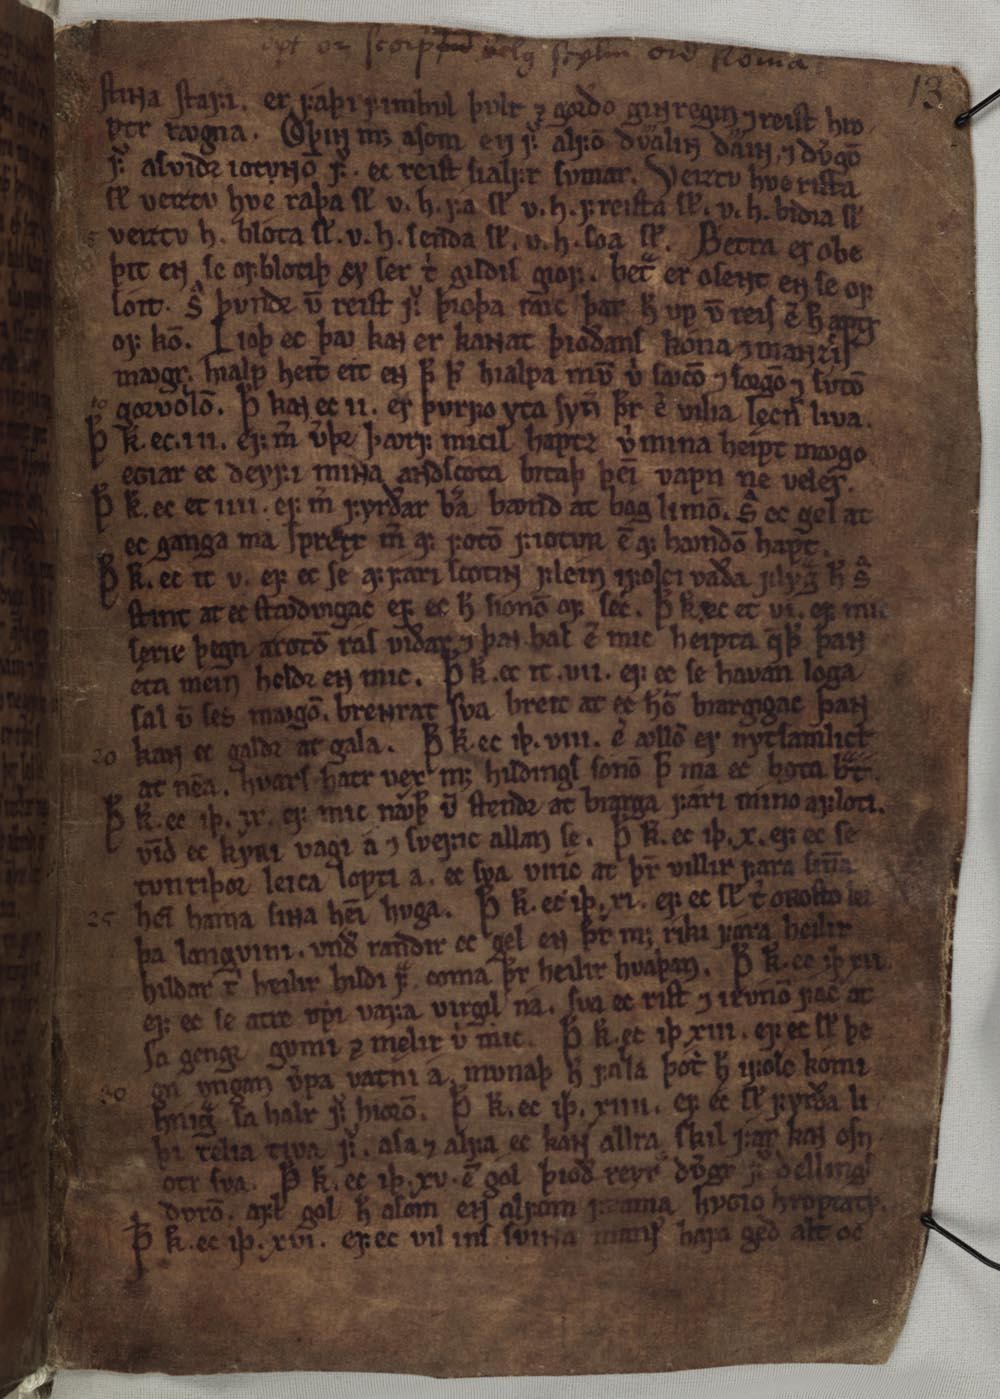 13
stina stafi. er fáþi fimbul þvlr ⁊ gørðo ginregin ⁊ reist hro
ptr ravgna. Oþin m; asom en f͛ alfō dvalin dáin, ⁊ dvgō
f͛ alsvidr iotunō f͛. ec reist sialfr svmar. Veiztv hve rista
sl̄ veiztv hve raþa sl̄ v. h. fa sl̄ v. h. freista sl̄. v. h. bidia sl̄
5 veiztv h. blota sl̄. v. h. senda sl̄. v. h. soa sl̄. Betra er obe
þit en se ofblotiþ ey ser t̓ gildis giof. bet͛ er osent en se of
soit. s̄ þvndr v̄ reist f͛ þioþa ravc þar h̄ vp v̄ reis ē h̄ aptr
of kō. Lioþ ec þav kan er kannat þiodans kona ⁊ manzcis
mavgr. hialp heit͛ eit en þ̄ þ͛ hialpa mv̄ v̓ savcō ⁊ sorgō ⁊ svtō
10 gorvǫllō. Þ̄ kan ec ii. er þvrfo yta syn͛ þ̄r ē vilia lęcn͛ liva.
Þ̄ k̄. ec. iii. ef m̄ v̓þr þavrf micil haptz v̓ mina heipt mavgo
egiar ec deyfi mina andscota bitaþ þei̅ vapn ne veler.
Þ̄ k̄. ec et iiii. ef m̄ fyrðar b͛a bavnd at bog limō. s̄ ec gel at
ec ganga ma sprettr m̄ af fotō fioturr ē af hǫndō hapt.
Þ̄ k̄. ec it v. ef ec se af fari scotin flein ifolci vaða flyg͛a h̄ s̄
stint at ec stavðvigac ef ec h̄ sionō of sec. Þ̄ k̄. ec et vi. ef mic
sęrir þegn arotō ras viðar, ⁊ þan hal ē mic heipta qþ͛ þan
eta mein heldr en mic. Þ̄ k̄. ec it. vii. ef ec se havan loga
sal v̄ ses mavgō. brennrat sva breit at ec hō biargigac þan
20 kan ec galdr at gala. Þ̄ k̄. ec iþ. viii. ē ǫllō er nytsamlict
at nēa. hvars hatr vex m; hildings sonō þ̄ ma ec bǿta b͛t.
Þ̄ k̄. ec iþ. ix. ef mic navþ v̄ stendr at biarga fari mino afloti.
vīd ec kyrri vagi a ⁊ svefic allan se. Þ̄ k̄. ec iþ. x. ef ec se
tvnriþor leica lopti a. ec sva vinc at þ̄r villir fara sin͛a
25 hei̅ hama sina hei̅ hvga. Þ̄ k̄. ec iþ. xi. ef ec sl̄ t̓ orrosto lei
þa langvini. vnd͛ randir ec gel en þ̄r m; riki fara heilir
hildar t̓ heilir hildi f͛. coma þ̄r heilir hvaþan. Þ̄ k̄. ec iþ xii.
ef ec se atre vpi vafa virgil ná. sva ec rist ⁊ irvnō fác at
sa gengr gvmi ⁊ męlir v̓ mic. Þ̄ k̄. ec iþ. xiii. ef ec sl̄ þe
gn vngan v̓pa vatni a, mvnaþ h̄ falla þot h̄ ifolc komi
30 hnig͛a sa halr f͛ hiorō. Þ̄ k̄. ec iþ. xiiii. ef ec sl̄ fyrða li
þi telia tiva f͛. asa ⁊ alfa ec kan allra skil fár kan osn
otr sva. Þ̄ k̄. ec iþ. xv. ē gol þiod reyr͛ dv͛gr f͛ dellings
dvrō. afl gol h̄ asom en alfom frama hygio hroptatý.
Þ̄ k̄. ec iþ. xvi. ef ec vil ins svinna mans hafa geð alt oc